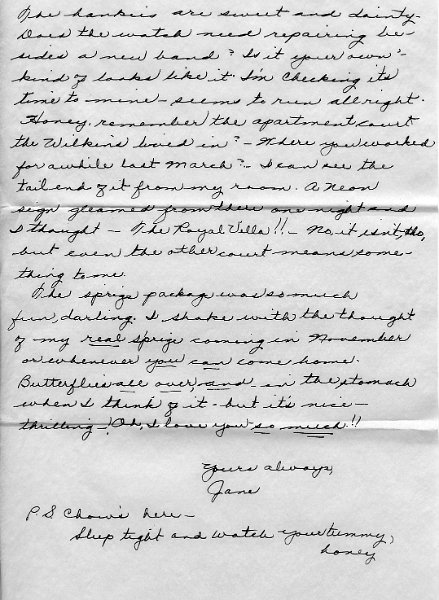 The hankies are sweet and dainty.
Does the watch need repairing be-
sides a new band? Is it your own? -
kind of looks like it. I'm checking its
time to mine - seems to run allright.
Honey, remember the apartment court
the Wilkins lived in? - Where you worked
for awhile last March? - I can see the
tail end of it from my room. A Neon
sign gleamed from there one night and
I thought - The Royal Villa!! - No it isn't, tho,
but even the other court means some-
thing to me.
The sprize package was so much
fun, darling. I shake with the thought
of my real sprize coming in November
or whenever you can come home.
Butterflies all over, and in the stomach
when I think of it - but it's nice -
thrilling! Oh, I love you so much!!
Yours always,
Jane
P.S Chow's here -
Sleep tight and watch your tummy,
honey